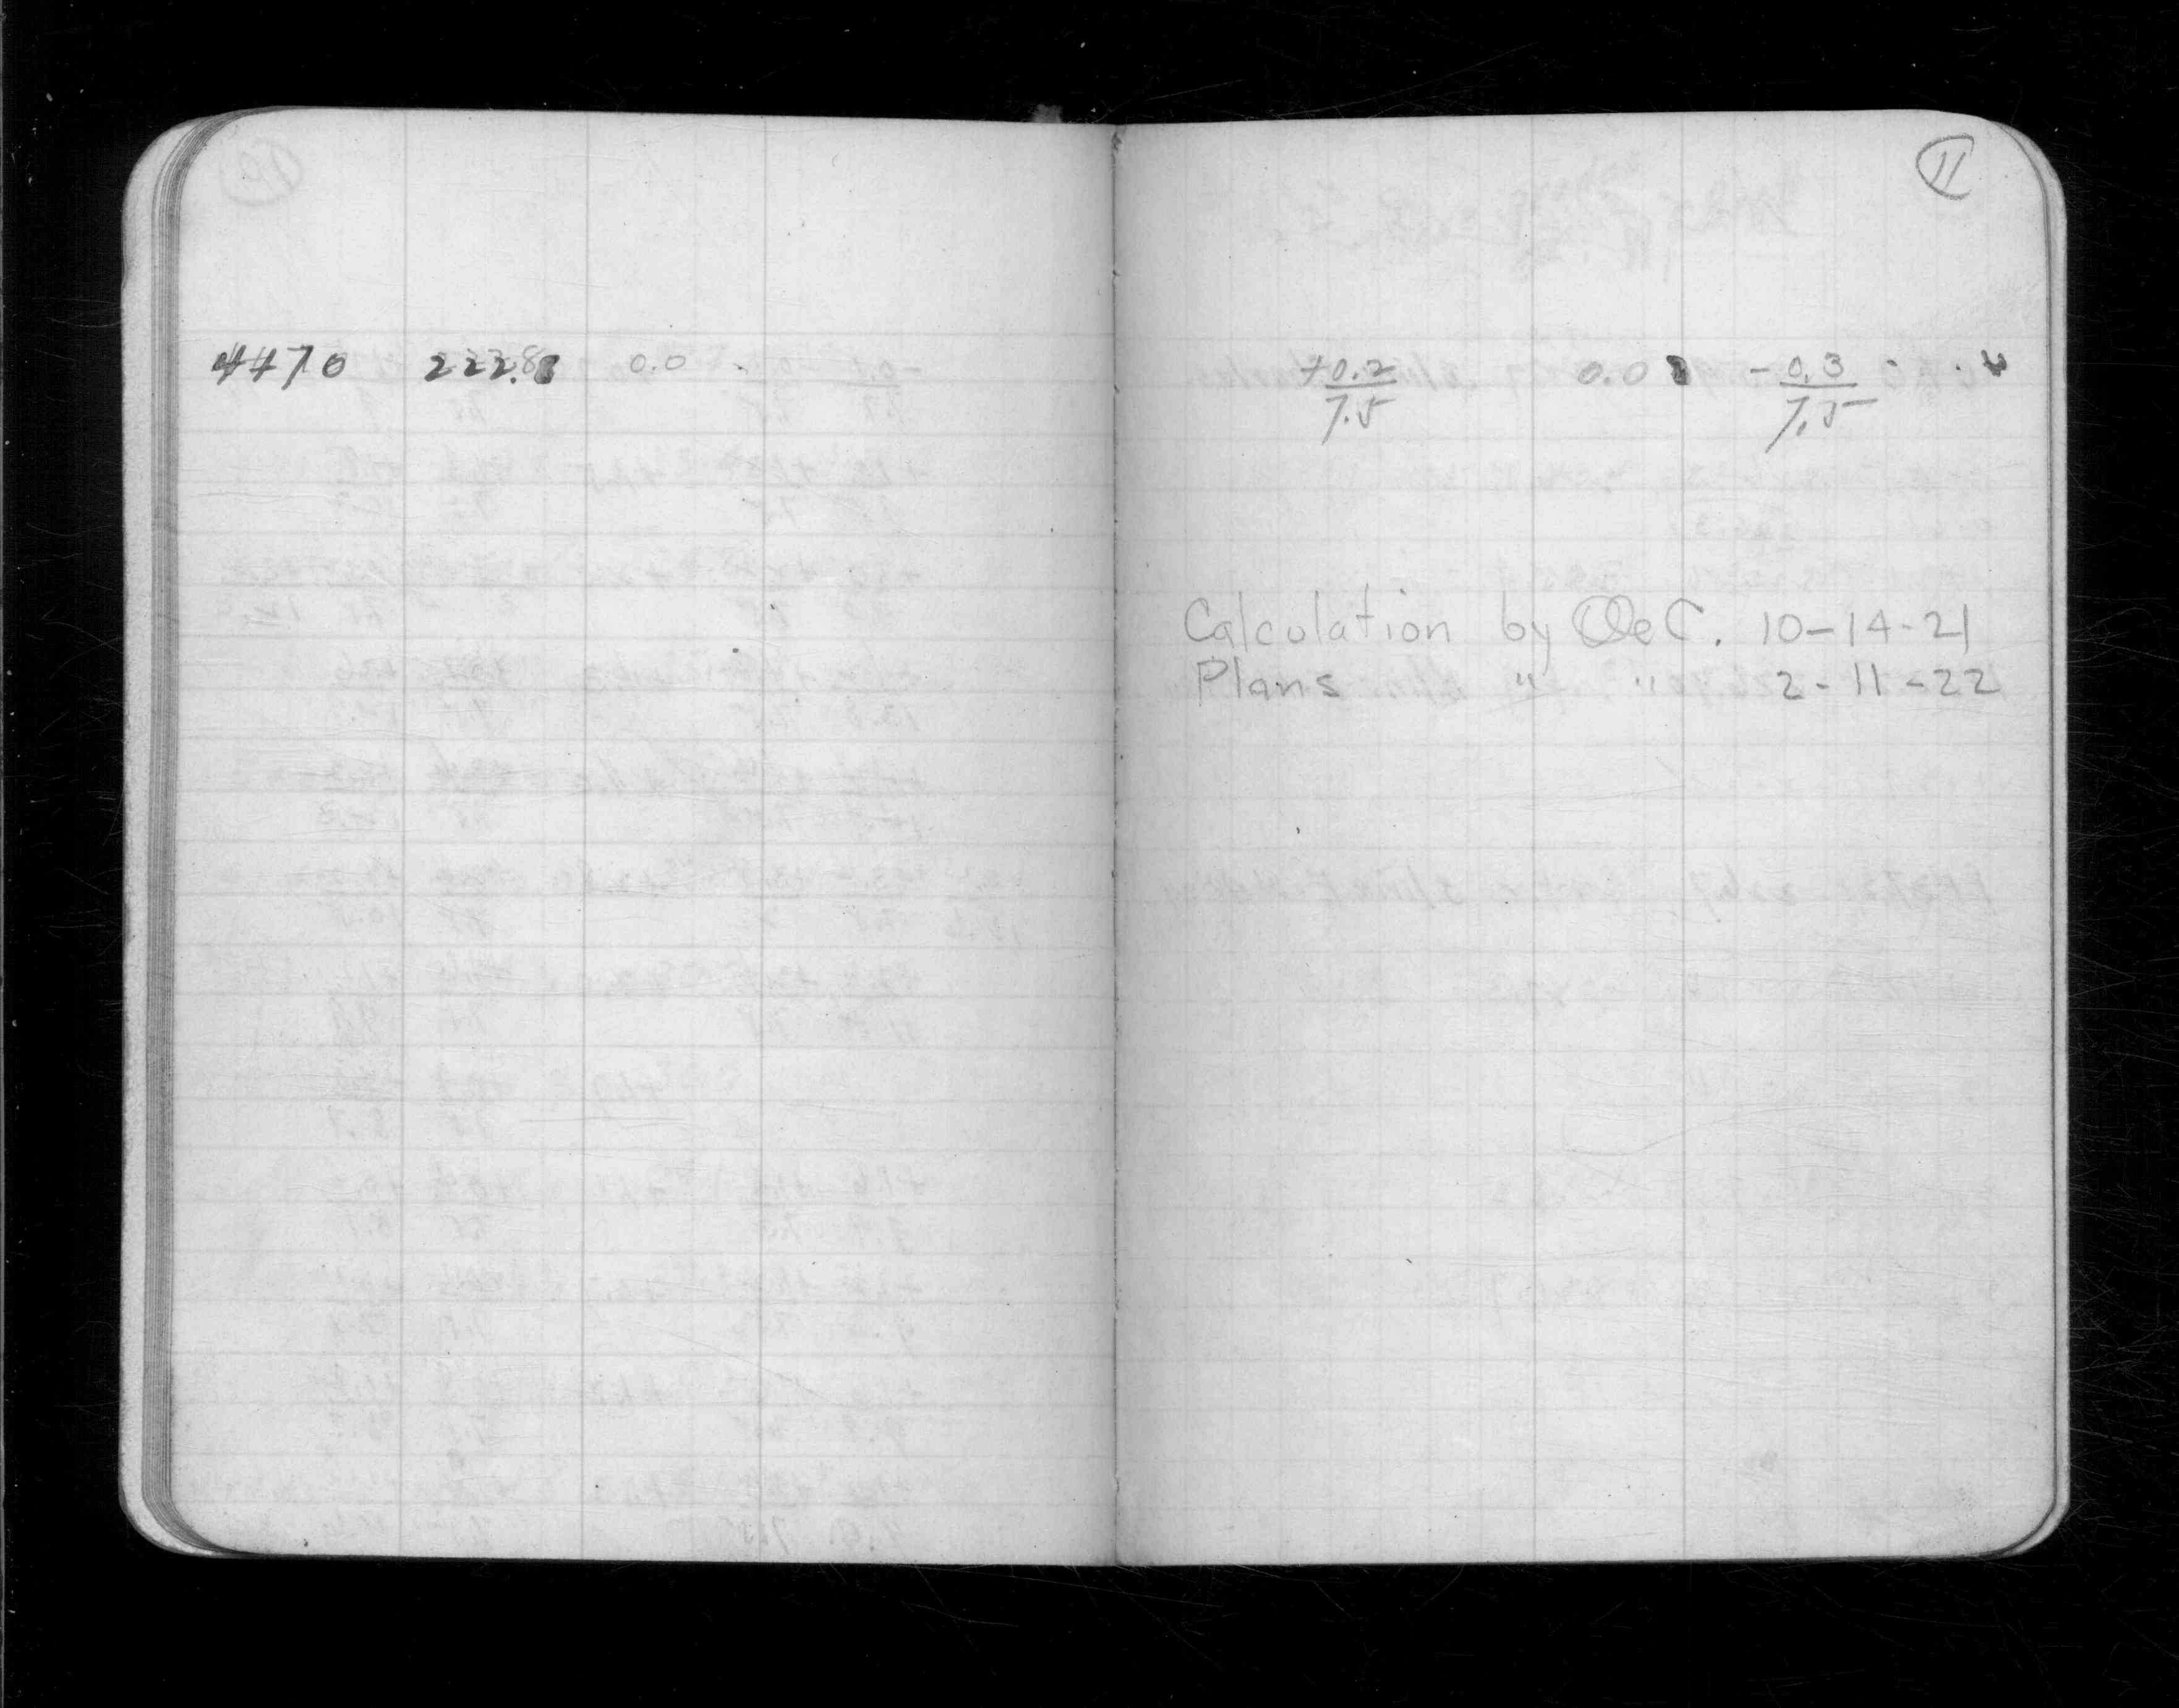 11
4470 222.8 0.0
+0.2/7.5 0.0 -0.3/7.5
Calculation by OeC. 10-14-21
Plans " " 2-11-22